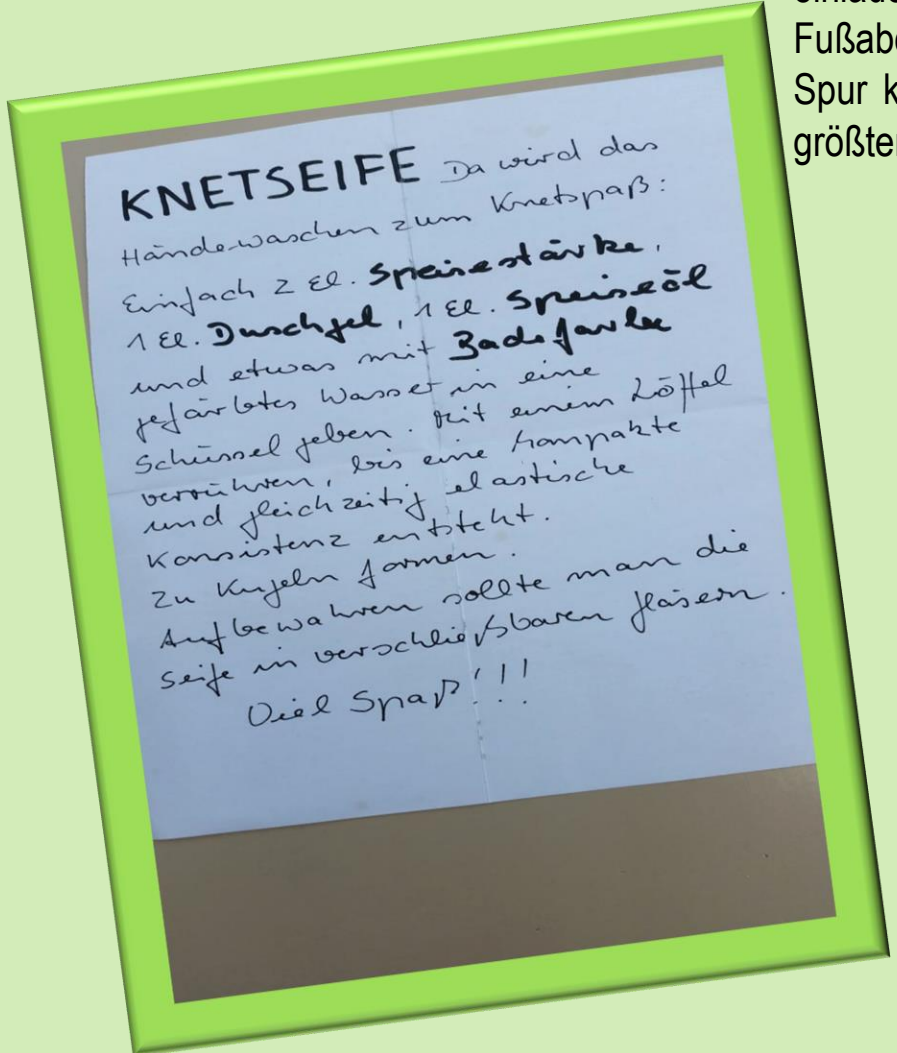 Fußab
Spur k
größte
KNETSEIFE Da wird das
Händewaschen zum Knetspaß:
Einfach 2 El. Speisestärke,
1 El. Duschgel, 1 El. Speiseöl
und etwas mit Badefarbe
gefärbtes Wasser in eine
Schüssel geben. Mit einem Löffel
verrühren, bis eine kompakte
und gleichzeitig elastische
Konsistenz entsteht.
Zu Kugeln formen.
Aufbewahren sollte man die
Seife in verschließbaren Gläsern.
Viel Spaß!!!